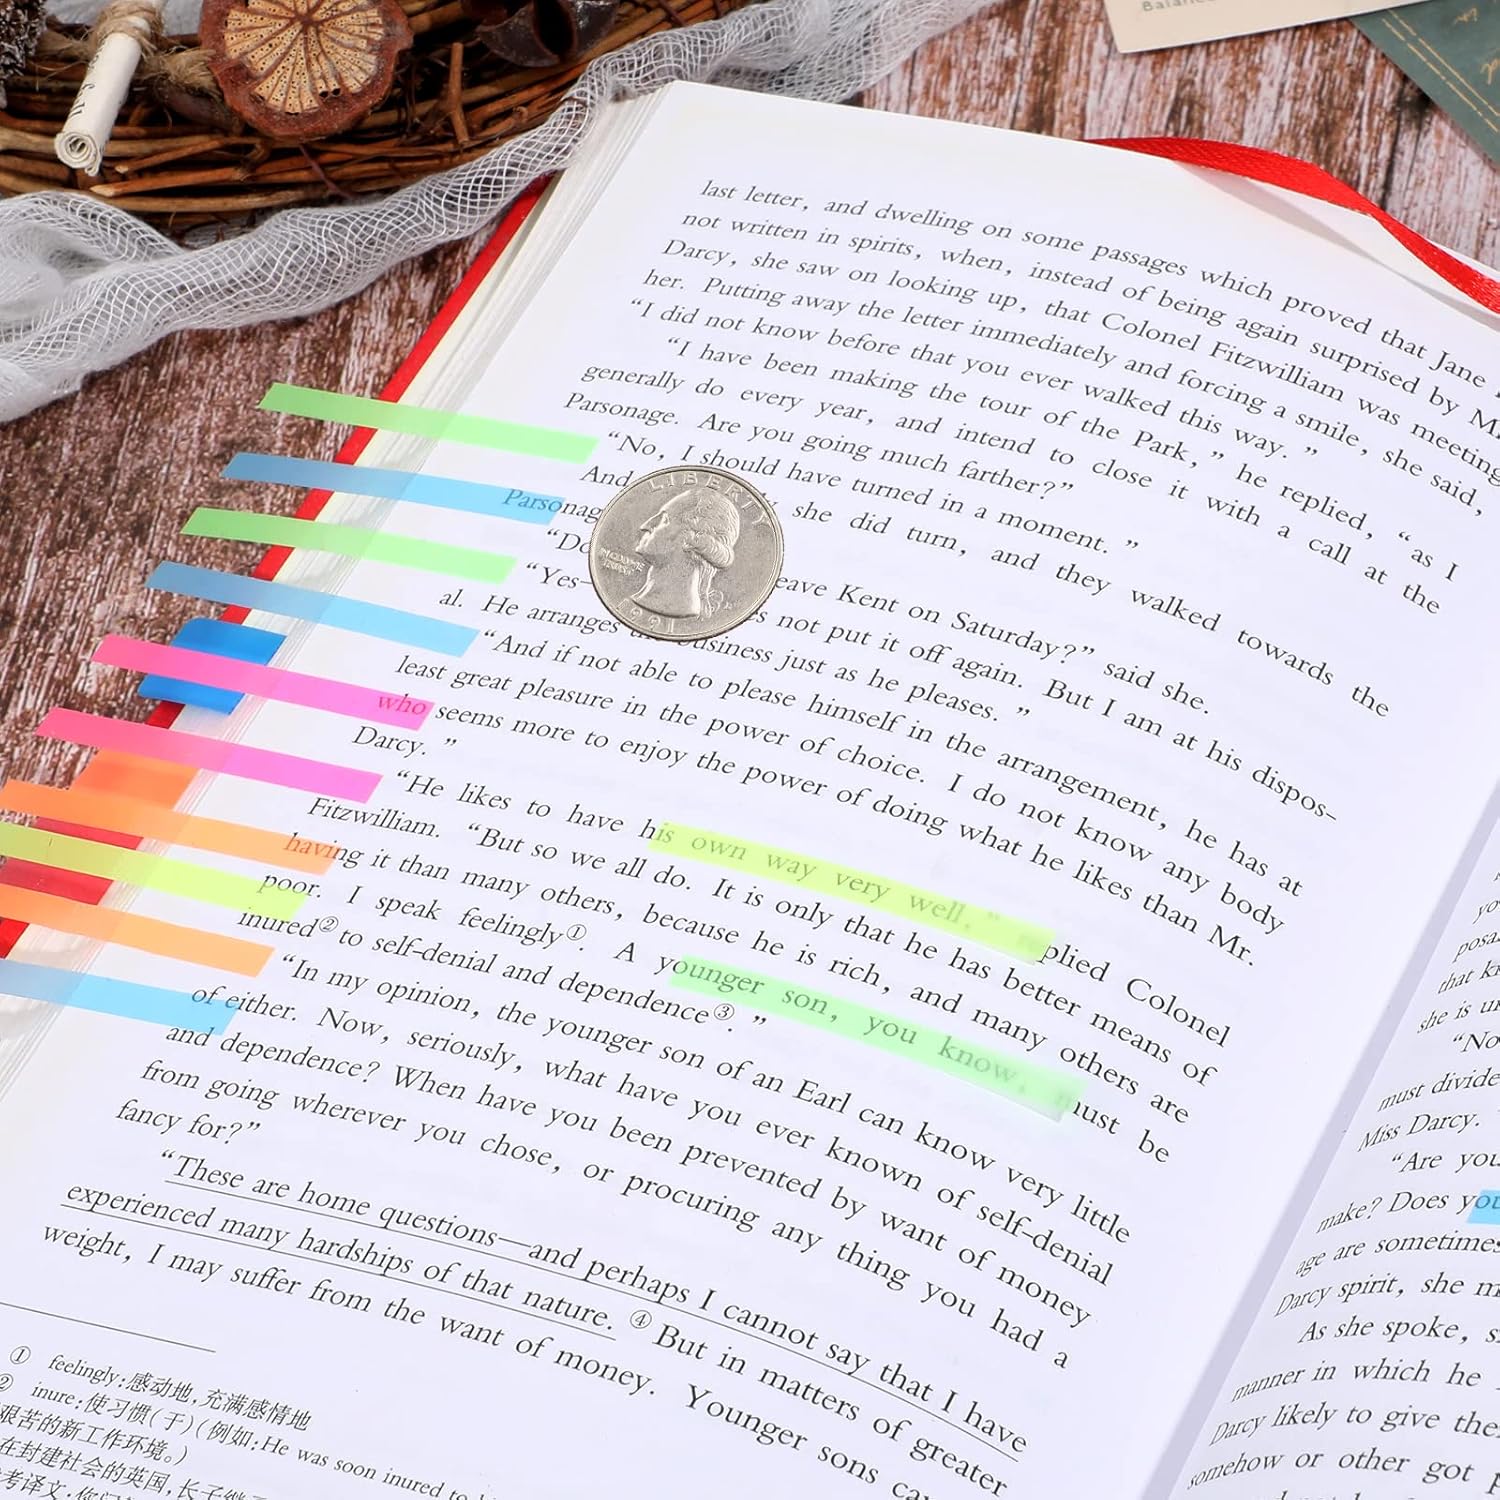 Balance
last letter, and dwelling on some passages which proved that Jane
not written in spirits, when, instead of being again surprised by Mr.
Darcy, she saw on looking up, that Colonel Fitzwilliam was meeting
her. Putting away the letter immediately and forcing a smile, she said,
“I did not know before that you ever walked this way. ”
“I have been making the tour of the Park, ” he replied, “as I
generally do every year, and intend to close it with a call at the
Parsonage. Are you going much farther?”
“No, I should have turned in a moment. ”
And she did turn, and they walked towards the
Parsonag
“Do eave Kent on Saturday?” said she.
“Yes— not put it off again. But I am at his dispos-
al. He arranges the business just as he pleases. ”
“And if not able to please himself in the arrangement, he has at
least great pleasure in the power of choice. I do not know any body
who seems more to enjoy the power of doing what he likes than Mr.
Darcy. ”
“He likes to have his own way very well, ” replied Colonel
Fitzwilliam. “But so we all do. It is only that he has better means of
having it than many others, because he is rich, and many others are
poor. I speak feelingly①. A younger son, you know, must be
inured② to self-denial and dependence③. ”
“In my opinion, the younger son of an Earl can know very little
of either. Now, seriously, what have you ever known of self-denial
and dependence? When have you been prevented by want of money
from going wherever you chose, or procuring any thing you had a
fancy for?”
“These are home questions—and perhaps I cannot say that I have
experienced many hardships of that nature. ④ But in matters of greater
weight, I may suffer from the want of money. Younger sons ca
① feelingly:感动地,充满感情地
② inure:使习惯(于)(例如:He was soon inured to
艰苦的新工作环境。)
在封建社会的英国,长子继
考译文:你们
LIBERTY
IN GOD WE
TRUST
P
1991
posa
that k
she is u
“No
must divide
Miss Darcy.
“Are you
make? Does you
age are sometimes
Darcy spirit, she m
As she spoke, s
manner in which he
Darcy likely to give the
somehow or other got